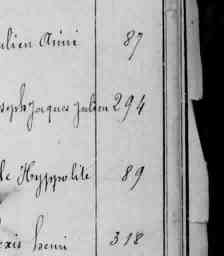 ulien Aimé 87
oseph Jacques Julien 294
le Hyppolite 89
exis henri 318